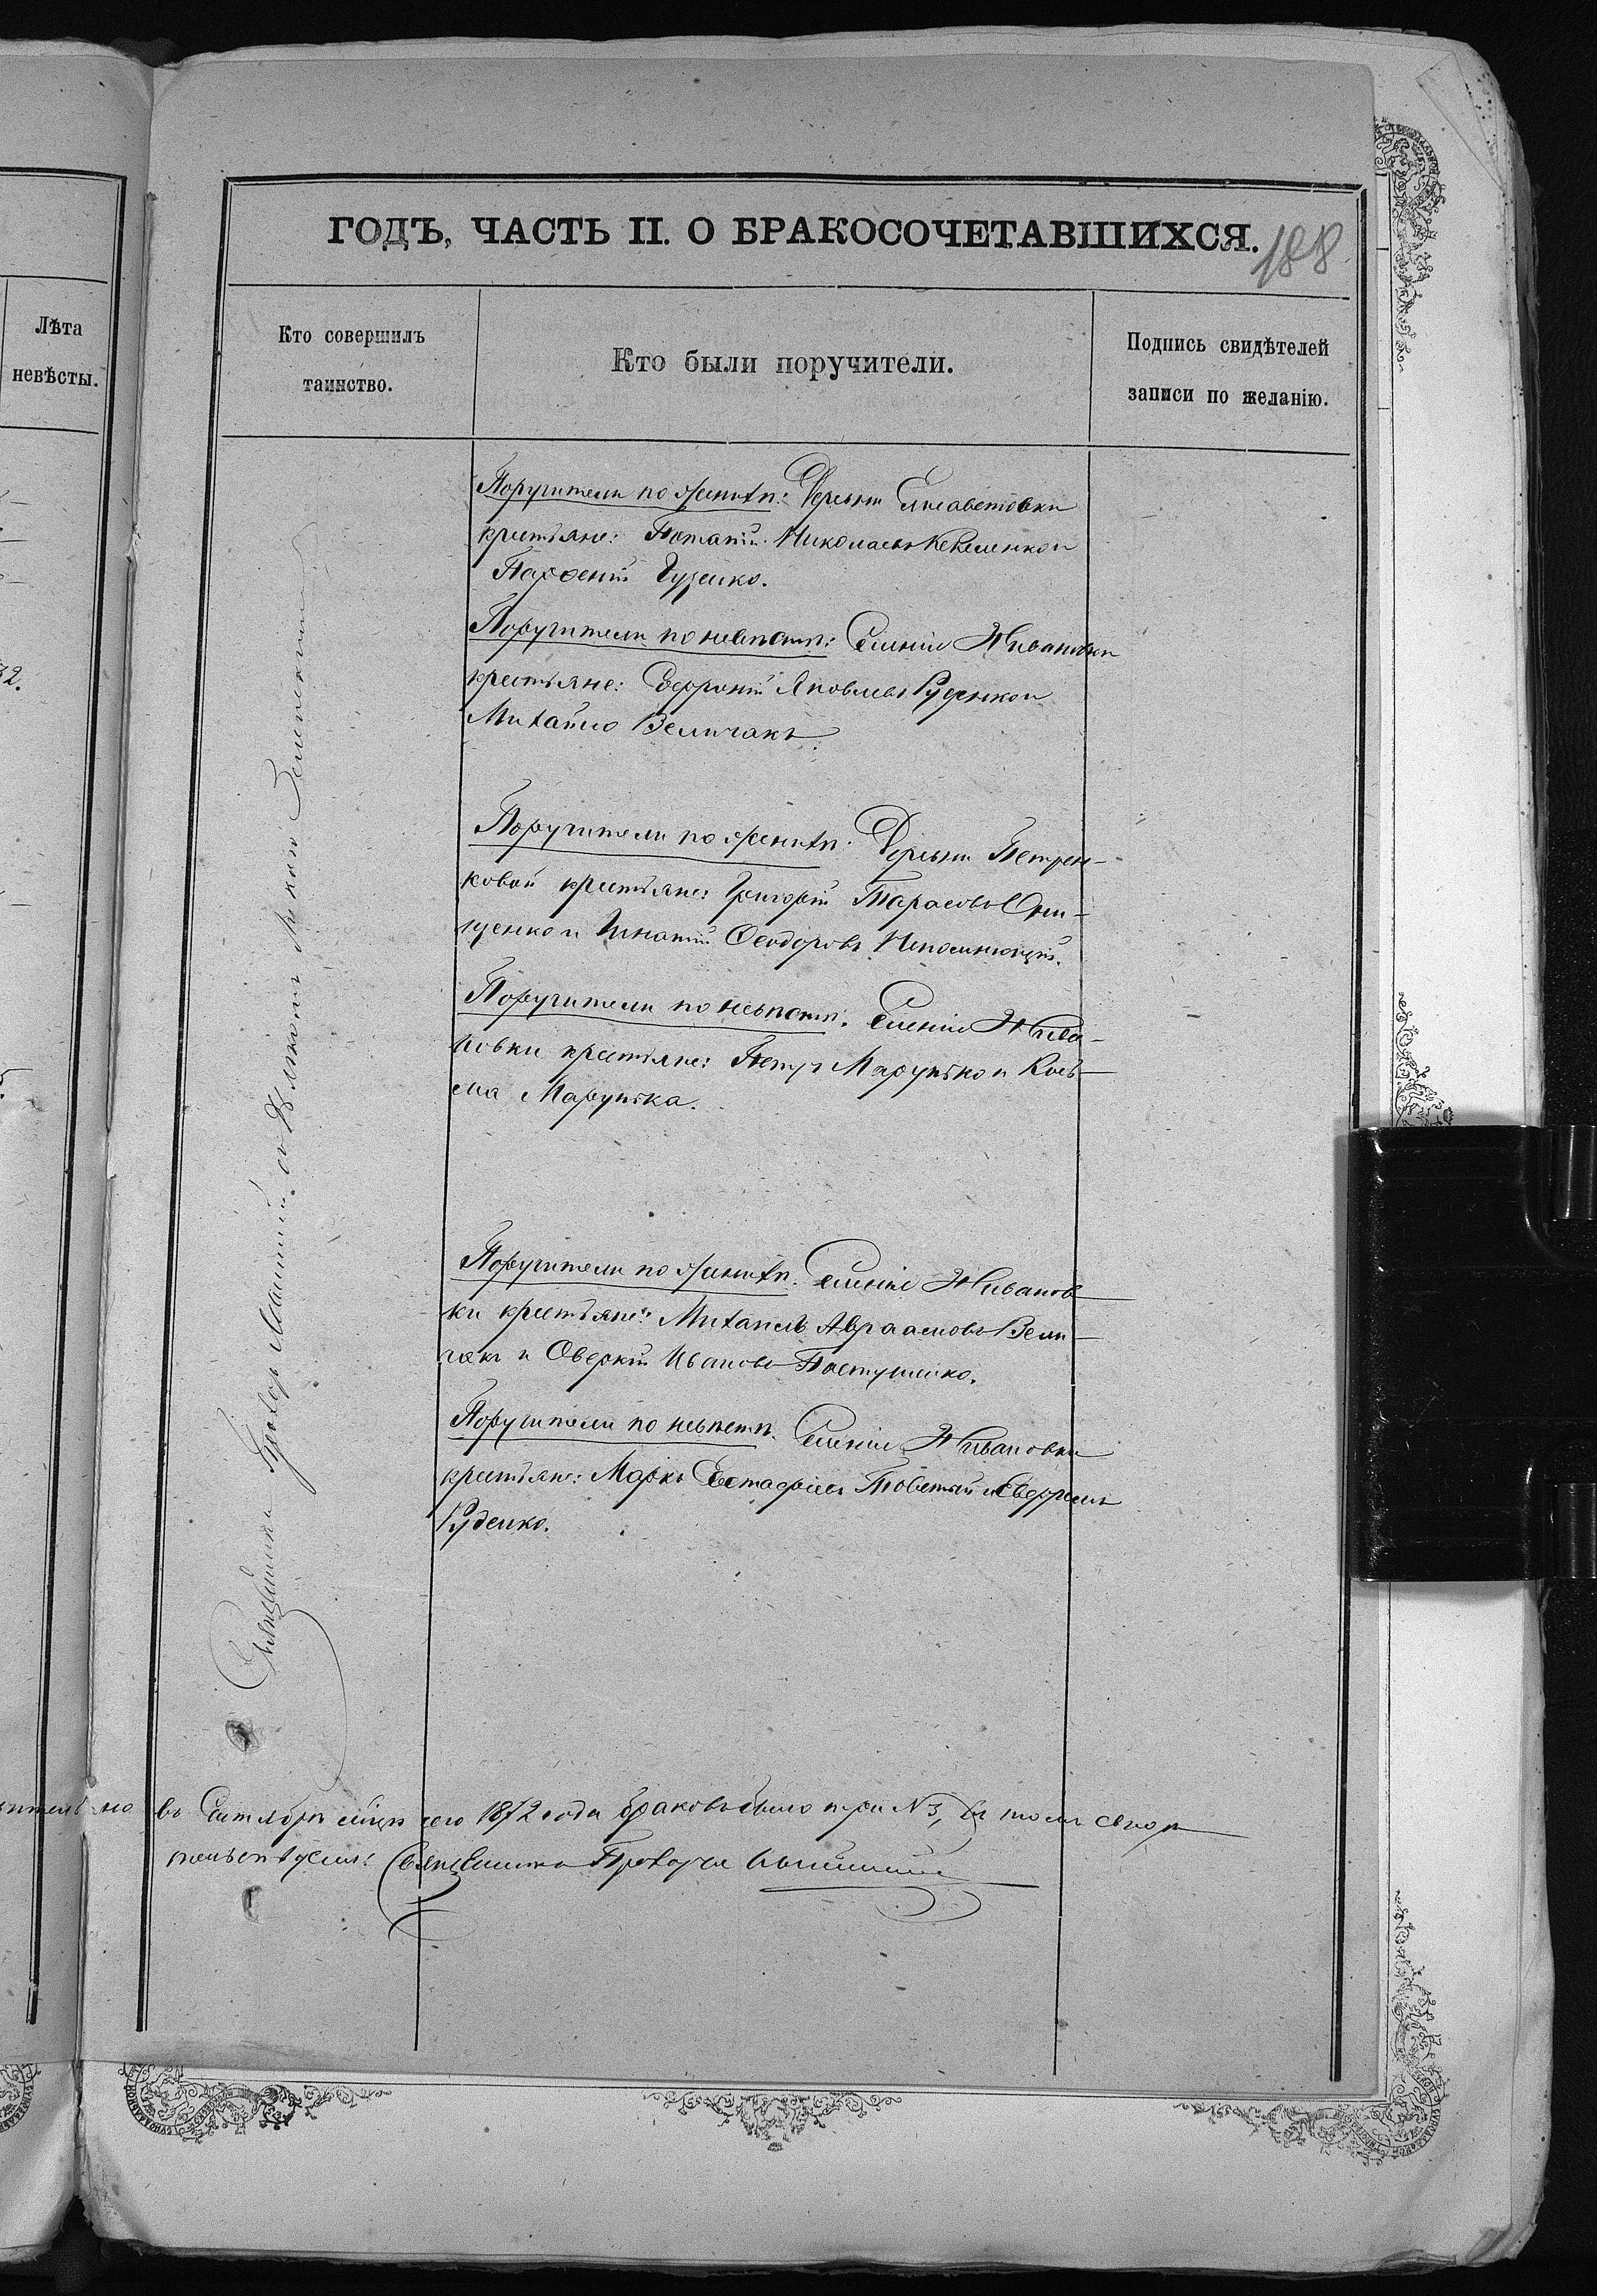 ГОДЪ, ЧАСТЬ II. О БРАКОСОЧЕТАВШИХСЯ.
188
Лѣта
невѣсты.
Кто совершилъ
таинство.
Кто были поручители.
Подпись свидѣтелей
записи по желанію.
Поручители по женихѣ: Деревни Елисаветовки
крестьяне: Потапій Николаевъ и
Парфеній Гуценко.
Поручители по невѣстѣ: Селенія Живановки
крестьяне: Яковлевъ Руденко и
Михайло Величакъ.
32.
Поручители по женихѣ: Деревни Петрен-
ковой крестьяне: Григорій Тарасовъ Они-
щенко и Игнатій Феодоровъ
Поручители по невѣстѣ: Селенія Жива-
новки крестьяне: Петръ Марунько и Козь-
ма Марунька.
Поручители по женихѣ: Селенія Живанов-
ки крестьяне: Михаилъ Авраамовъ Вели-
чакъ и Оверкій Ивановъ Пастушенко.
Поручители по невѣстѣ: Селенія Живановки
крестьяне: Марко Евстафіевъ и
Руденко.
Священникъ Прохоръ съ
въ Сентябрѣ мѣсяцѣ сего 1872 года браковъ было три № 3, въ томъ
Священникъ Прохоръ